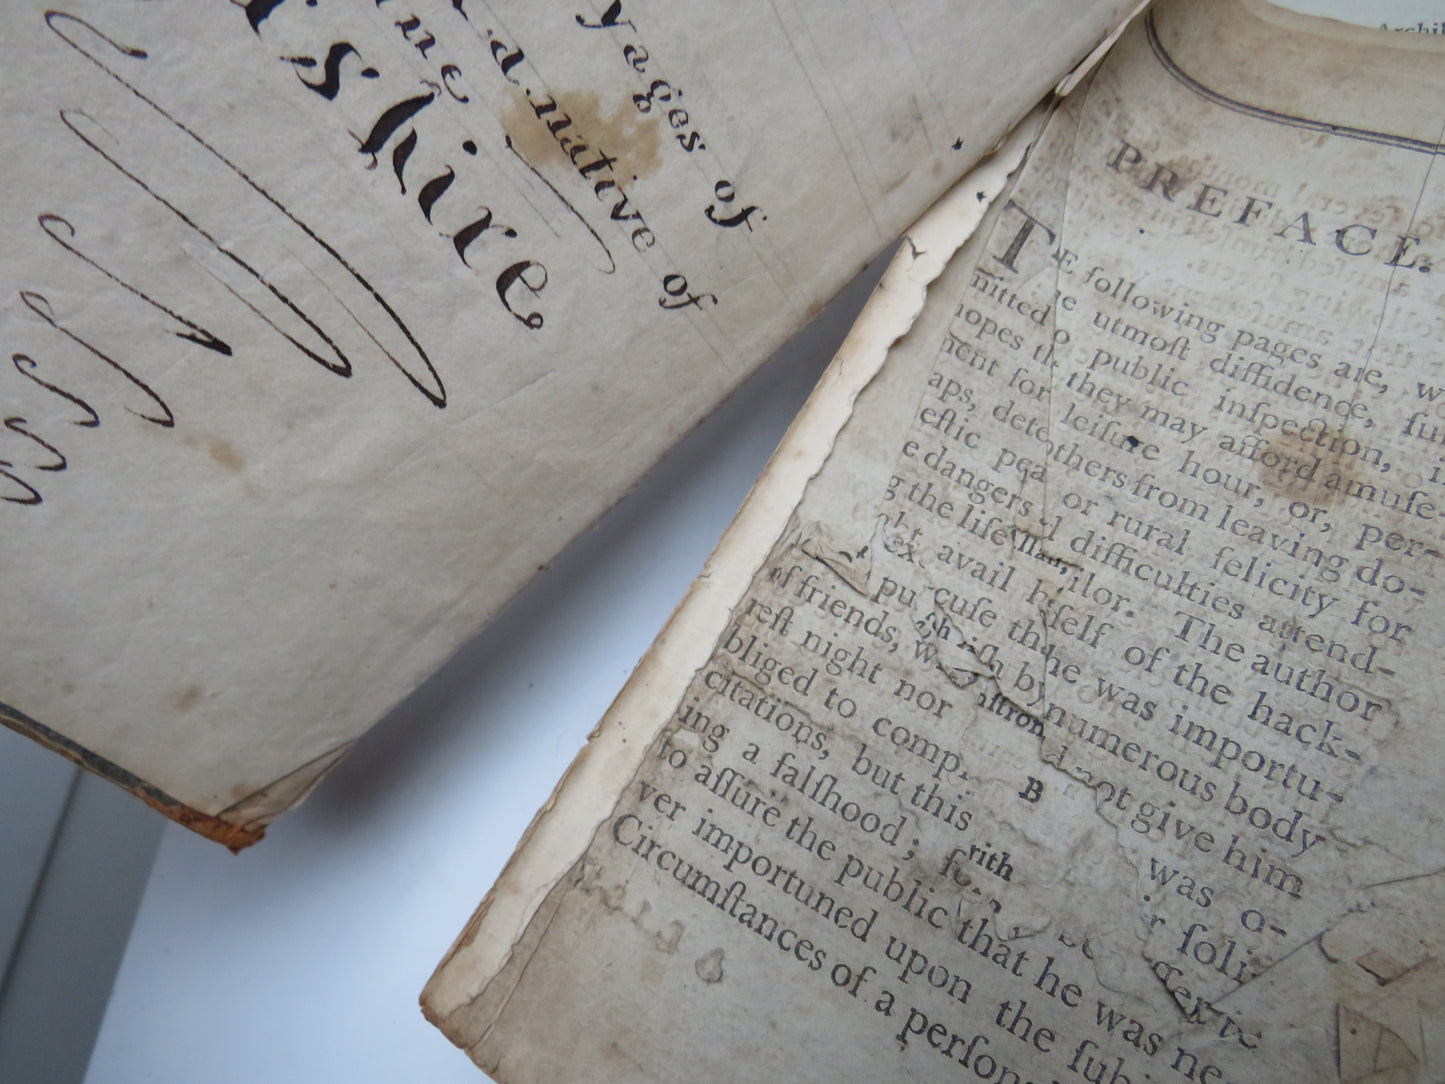 yages of
ine
a native of
rshire
Archi
PREFACE.
THE following pages are, w
mitted to the utmoſt diffidence, ſu
public inſpection, i
hopes they may afford amuſe-
ment for leiſure hour, or, per-
aps, dete others from leaving do-
eſtic pea or rural felicity for
e dangers difficulties attend-
g the life ilor. The author
avail h ſelf of the hack-
cuſe th he was importu-
of friends, by numerous body
reſt night nor not give him
bliged to comp was o-
citations, but this r ſoli-
ing a falſhood;
to aſſure the public that he was ne
ver importuned upon the ſubj
Circumſtances of a perſon
rith
B